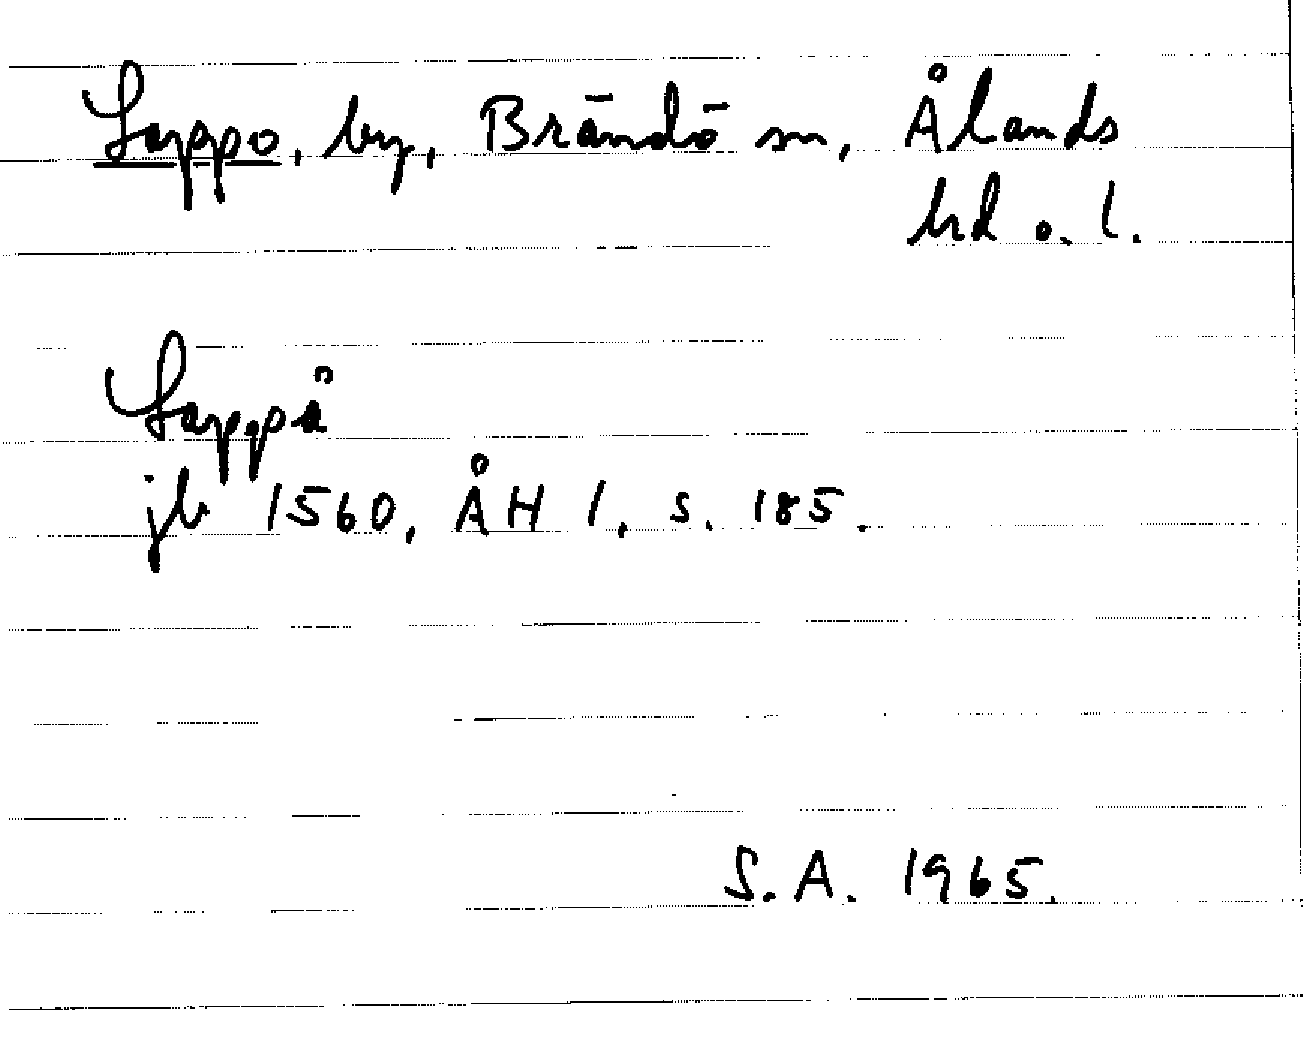 Lappo, by, Brändö sn, Ålands
hd o. l.
Lappå
jb 1560, ÅH 1, s. 185.
S.A. 1965.